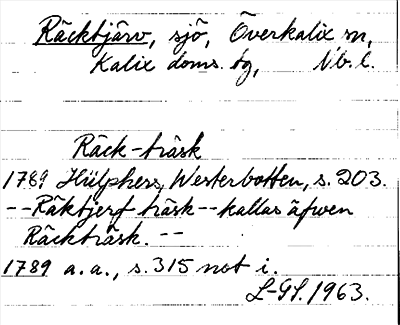 Räcktjärv, sjö, Överkalix sn,
Kalix doms. tg, Nb. l.
Räck-träsk
1789 Hülphers, Westerbotten, s. 203.
--Räktjerf träsk--kallas äfwen
Räckträsk. --
1789 a. a., s. 315 not i.
L-GS. 1963.